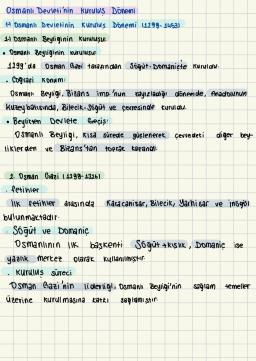 Osmanlı Devleti'nin Kuruluş Dönemi
1) Osmanlı Devletinin Kuruluş Dönemi (1299-1453)
1.1 Osmanlı Beyliğinin Kuruluşu
• Osmanlı Beyliğinin kuruluşu
1299'da Osman Gazi tarafından Söğüt-Domaniç'te kuruldu.
• Coğrafi Konum:
Osmanlı Beyliği, Bizans İmp.'nun zayıfladığı dönemde, Anadolunun
Kuzeybatısında, Bilecik-Söğüt ve çevresinde kuruldu.
• Beylikten Devlete Geçiş:
Osmanlı Beyliği, kısa sürede güçlenerek çevredeki diğer bey-
liklerden ve Bizans'tan toprak kazandı.
2. Osman Gazi (1299-1326)
• fetihler
İlk fetihler arasında Karacahisar, Bilecik, Yarhisar ve İnegöl
bulunmaktadır.
• Söğüt ve Domaniç
Osmanlının ilk başkenti Söğüt→kışlık, Domaniç ise
yazlık merkez olarak kullanılmıştır.
• Kuruluş Süreci
Osman Gazi'nin liderliği, Osmanlı Beyliği'nin sağlam temeller
üzerine kurulmasına katkı sağlamıştır.